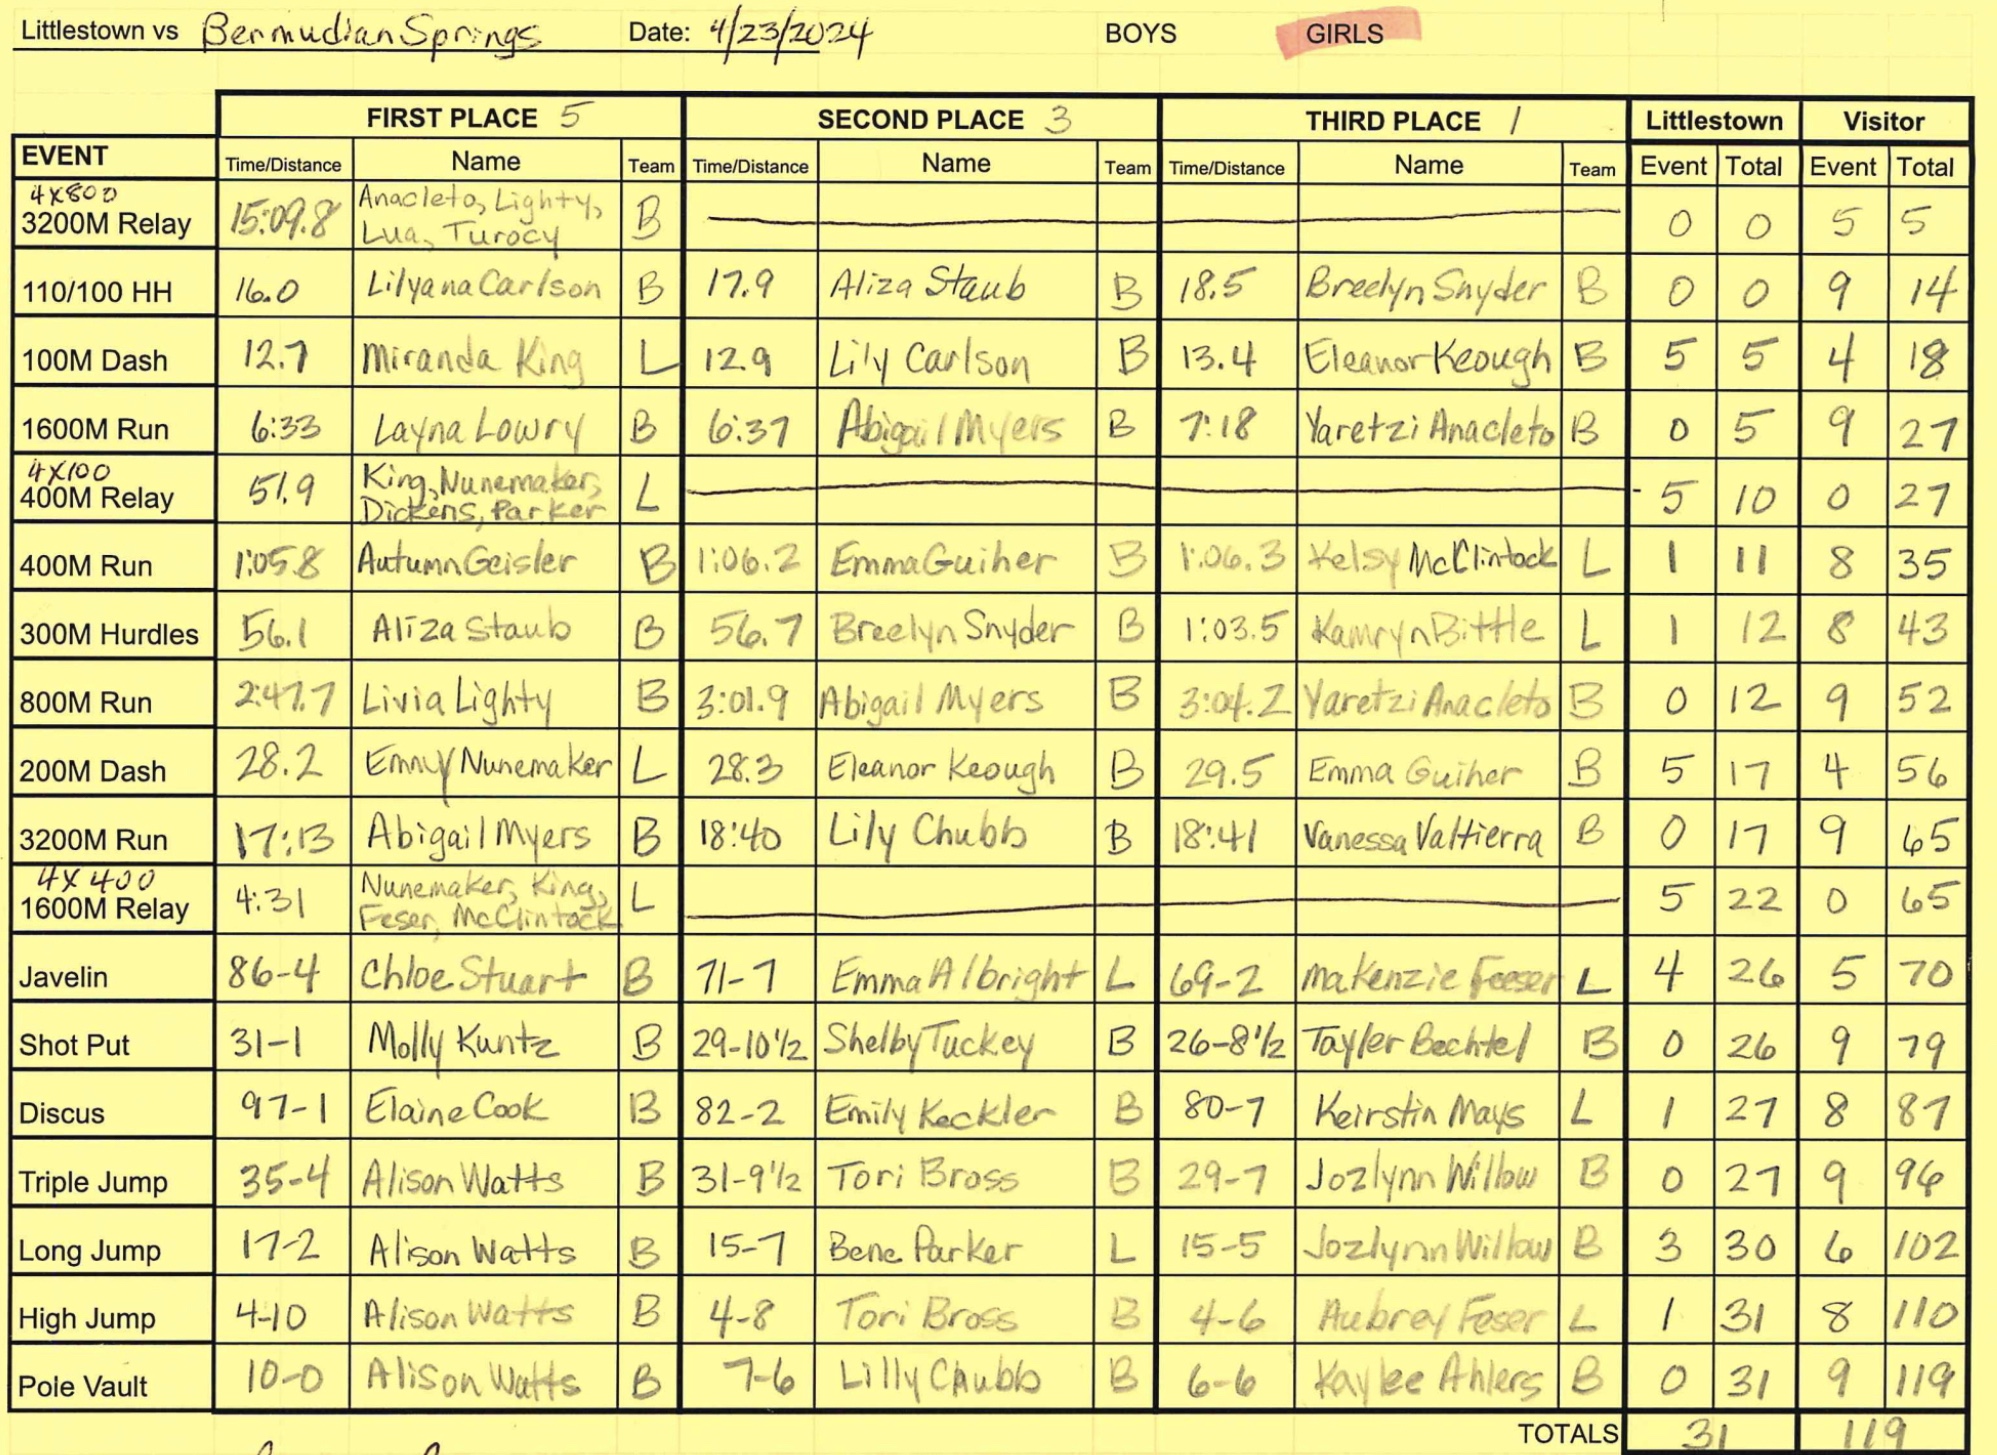 Littlestown vs Bermudian Springs Date: 4/23/2024 BOYS GIRLS
FIRST PLACE 5 SECOND PLACE 3 THIRD PLACE 1 Littlestown Visitor
EVENT Time/Distance Name Team Time/Distance Name Team Time/Distance Name Team Event Total Event Total
4x800
3200M Relay 15:09.8 Anacleto, Lighty, Lua, Turocy B 0 0 5 5
110/100 HH 16.0 Lilyana Carlson B 17.9 Aliza Staub B 18.5 Breelyn Snyder B 0 0 9 14
100M Dash 12.7 Miranda King L 12.9 Lily Carlson B 13.4 Eleanor Keough B 5 5 4 18
1600M Run 6:33 Layna Lowry B 6:37 Abigail Myers B 7:18 Yaretzi Anacleto B 0 5 9 27
4x100
400M Relay 51.9 King, Nunemaker, Dickens, Parker L 5 10 0 27
400M Run 1:05.8 Autumn Geisler B 1:06.2 Emma Guiher B 1:06.3 Kelsy McClintock L 1 11 8 35
300M Hurdles 56.1 Aliza Staub B 56.7 Breelyn Snyder B 1:03.5 Kamryn Bittle L 1 12 8 43
800M Run 2:47.7 Livia Lighty B 3:01.9 Abigail Myers B 3:04.2 Yaretzi Anacleto B 0 12 9 52
200M Dash 28.2 Emmy Nunemaker L 28.3 Eleanor Keough B 29.5 Emma Guiher B 5 17 4 56
3200M Run 17:13 Abigail Myers B 18:40 Lily Chubb B 18:41 Vanessa Valtierra B 0 17 9 65
4x400
1600M Relay 4:31 Nunemaker, King, Feser, McClintock L 5 22 0 65
Javelin 86-4 Chloe Stuart B 71-7 Emma Albright L 69-2 Makenzie Feeser L 4 26 5 70
Shot Put 31-1 Molly Kuntz B 29-10 1/2 Shelby Tuckey B 26-8 1/2 Tayler Bechtel B 0 26 9 79
Discus 97-1 Elaine Cook B 82-2 Emily Keckler B 80-7 Keirstin Mays L 1 27 8 87
Triple Jump 35-4 Alison Watts B 31-9 1/2 Tori Bross B 29-7 Jozlynn Willow B 0 27 9 96
Long Jump 17-2 Alison Watts B 15-7 Bene Parker L 15-5 Jozlynn Willow B 3 30 6 102
High Jump 4-10 Alison Watts B 4-8 Tori Bross B 4-6 Aubrey Feser L 1 31 8 110
Pole Vault 10-0 Alison Watts B 7-6 Lilly Chubb B 6-6 Kaylee Ahlers B 0 31 9 119
TOTALS 31 119